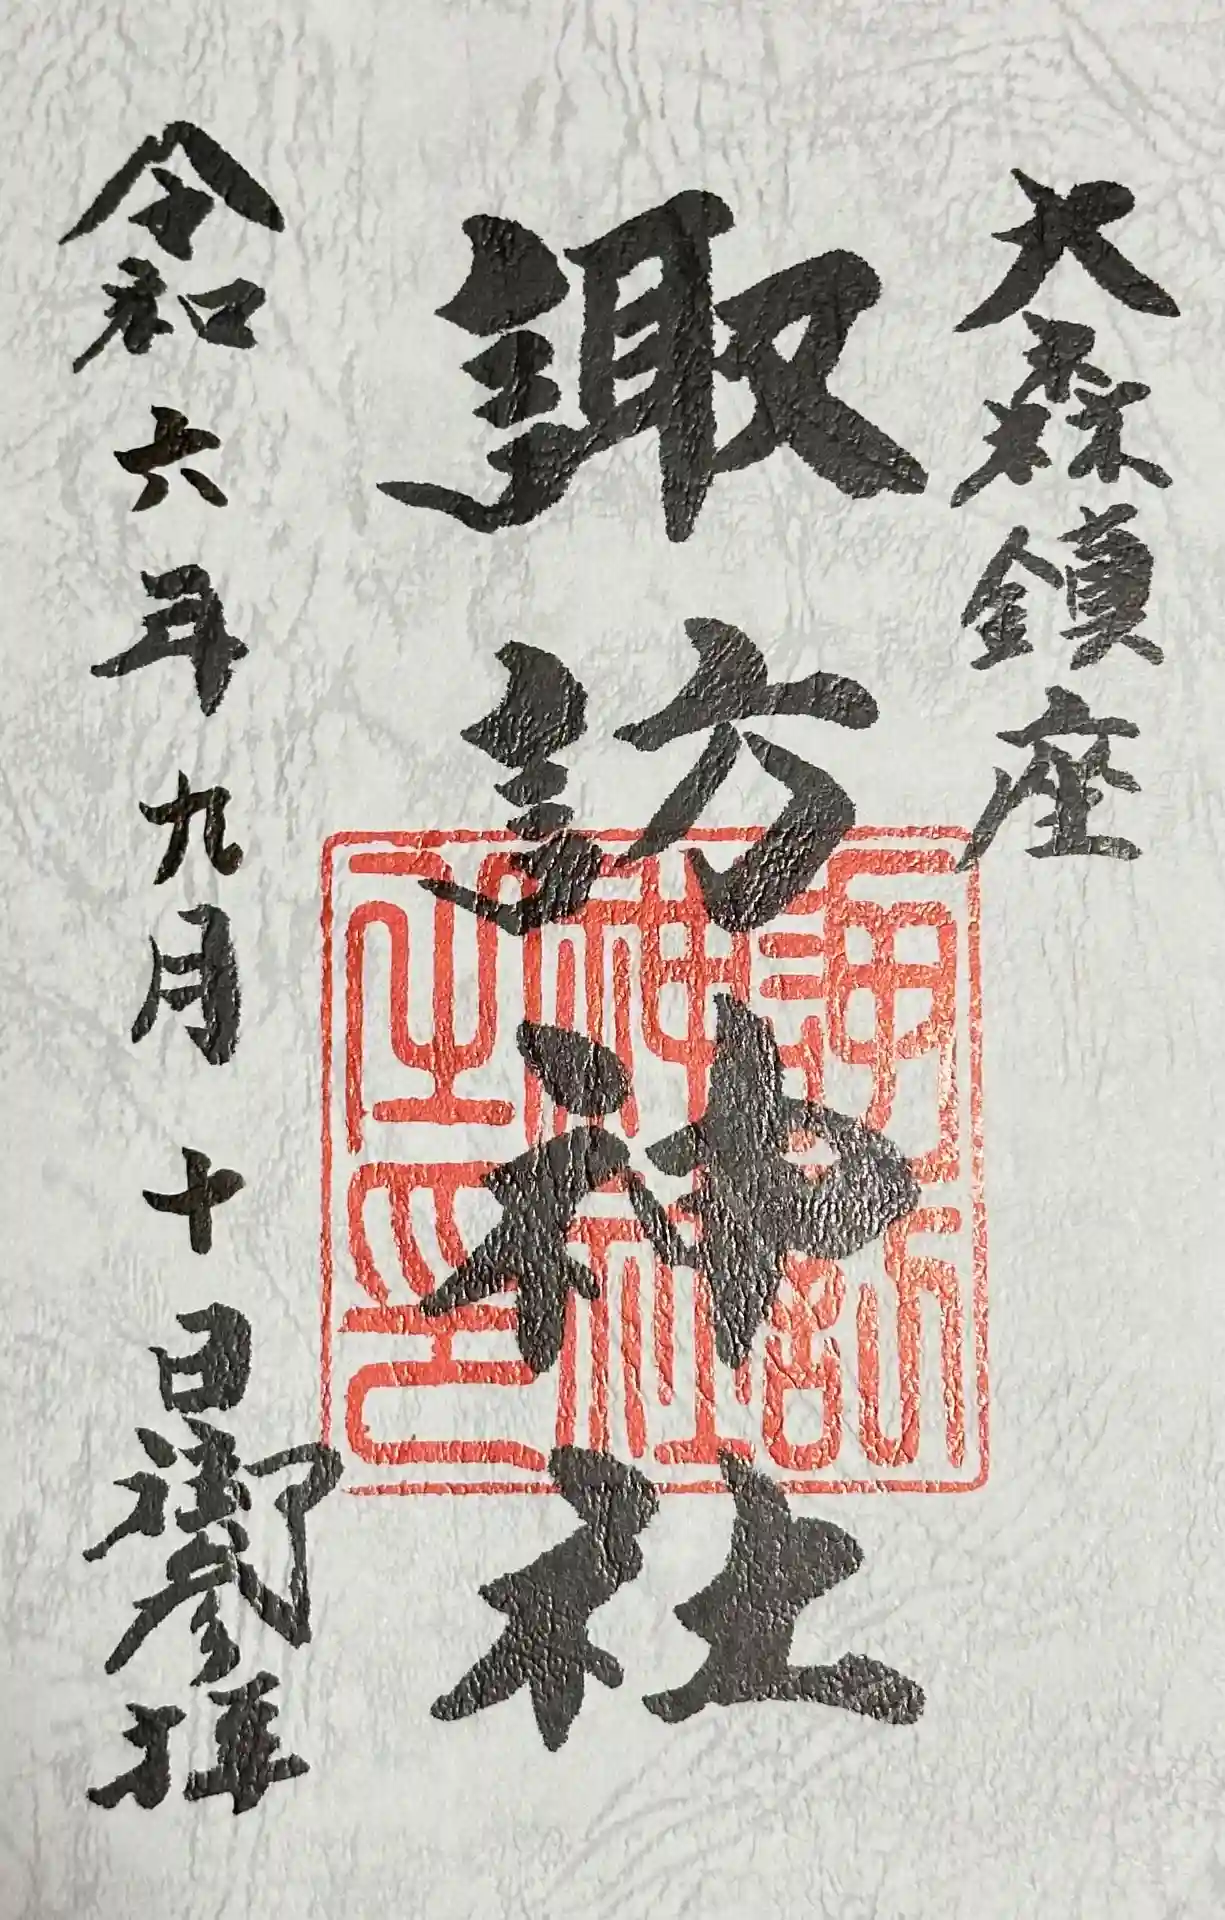 大森鎮座
諏訪神社
諏訪
神社
之印
令和六年九月十日御参拝